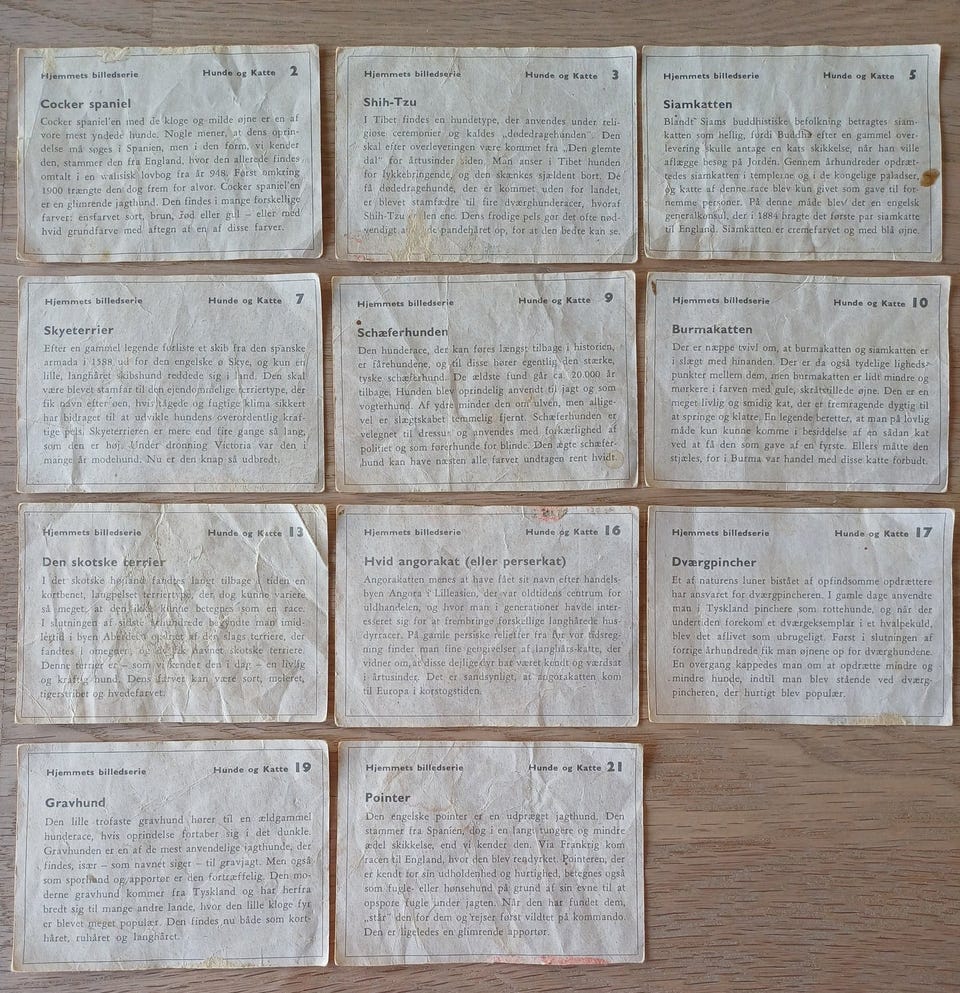 Hjemmets billedserie Hunde og Katte 2
Cocker spaniel
Cocker spaniel'en med de kloge og milde øjne er en af
vore mest yndede hunde. Nogle mener, at dens oprin-
delse må søges i Spanien, men i den form, vi kender
den, stammer den fra England, hvor den allerede findes
omtalt i en walisisk lovbog fra år 948. Først omkring
1900 trængte den dog frem for alvor. Cocker spaniel'en
er en glimrende jagthund. Den findes i mange forskellige
farver: ensfarvet sort, brun, rød eller gul – eller med
hvid grundfarve med aftegn af en af disse farver.
Hjemmets billedserie Hunde og Katte 3
Shih-Tzu
I Tibet findes en hundetype, der anvendes under reli-
giøse ceremonier og kaldes „dødedragehunden”. Den
skal efter overleveringen være kommet fra „Den glemte
dal” for årtusinder siden. Man anser i Tibet hunden
for lykkebringende, og den skænkes sjældent bort. De
få dødedragehunde, der er kommet uden for landet,
er blevet stamfædre til fire dværghunderacer, hvoraf
Shih-Tzu den ene. Dens frodige pels gør det ofte nød-
vendigt pandehåret op, for at den bedre kan se.
Hjemmets billedserie Hunde og Katte 5
Siamkatten
Blandt Siams buddhistiske befolkning betragtes siam-
katten som hellig, fordi Buddha efter en gammel over-
levering skulle antage en kats skikkelse, når han ville
aflægge besøg på Jorden. Gennem århundreder opdræt-
tedes siamkatten i templerne og i de kongelige paladser,
og katte af denne race blev kun givet som gave til for-
nemme personer. På denne måde blev det en engelsk
generalkonsul, der i 1884 bragte det første par siamkatte
til England. Siamkatten er cremefarvet og med blå øjne.
Hjemmets billedserie Hunde og Katte 7
Skyeterrier
Efter en gammel legende forliste et skib fra den spanske
armada i 1588 ud for den engelske ø Skye, og kun en
lille, langhåret skibshund reddede sig i land. Den skal
være blevet stamfar til den ejendommelige terriertype, der
fik navn efter øen, hvis tågede og fugtige klima sikkert
har bidraget til at udvikle hundens overordentlig kraf-
tige pels. Skyeterrieren er mere end fire gange så lang,
som den er høj. Under dronning Victoria var den i
mange år modehund. Nu er den knap så udbredt.
Hjemmets billedserie Hunde og Katte 9
Schæferhunden
Den hunderace, der kan føres længst tilbage i historien,
er fårehundene, og til disse hører egentlig den stærke,
tyske schæferhund. De ældste fund går ca. 20.000 år
tilbage. Hunden blev oprindelig anvendt til jagt og som
vogterhund. Af ydre minder den om ulven, men allige-
vel er slægtskabet temmelig fjernt. Schæferhunden er
velegnet til dressur og anvendes med forkærlighed af
politiet og som førerhunde for blinde. Den ægte schæfer-
hund kan have næsten alle farver undtagen rent hvidt.
Hjemmets billedserie Hunde og Katte 10
Burmakatten
Der er næppe tvivl om, at burmakatten og siamkatten er
i slægt med hinanden. Der er da også tydelige ligheds-
punkter mellem dem, men burmakatten er lidt mindre og
mørkere i farven med gule, skråtstillede øjne. Den er en
meget livlig og smidig kat, der er fremragende dygtig til
at springe og klatre. En legende beretter, at man på lovlig
måde kun kunne komme i besiddelse af en sådan kat
ved at få den som gave af en fyrste. Ellers måtte den
stjæles, for i Burma var handel med disse katte forbudt.
Hjemmets billedserie Hunde og Katte 13
Den skotske terrier
I det skotske højland fandtes langt tilbage i tiden en
kortbenet, langpelset terriertype, der dog kunne variere
så meget, at den ikke kunne betegnes som en race.
I slutningen af sidste århundrede begyndte man imid-
lertid i byen Aberdeen opdræt af den slags terriere, der
fandtes i omegnen, og de fik navnet skotske terriere.
Denne terrier er – som vi kender den i dag – en livlig
og kraftig hund. Dens farver kan være sort, meleret,
tigerstribet og hvedefarvet.
Hjemmets billedserie Hunde og Katte 16
Hvid angorakat (eller perserkat)
Angorakatten menes at have fået sit navn efter handels-
byen Angora i Lilleasien, der var oldtidens centrum for
uldhandelen, og hvor man i generationer havde inter-
esseret sig for at frembringe forskellige langhårede hus-
dyrracer. På gamle persiske relieffer fra før vor tidsreg-
ning finder man fine gengivelser af langhårs-katte, der
vidner om, at disse dejlige dyr har været kendt og værdsat
i årtusinder. Det er sandsynligt, at angorakatten kom
til Europa i korstogstiden.
Hjemmets billedserie Hunde og Katte 17
Dværgpincher
Et af naturens luner bistået af opfindsomme opdrættere
har ansvaret for dværgpincheren. I gamle dage anvendte
man i Tyskland pinchere som rottehunde, og når der
undertiden forekom et dværgeksemplar i et hvalpekuld,
blev det aflivet som ubrugeligt. Først i slutningen af
forrige århundrede fik man øjnene op for dværghundene.
En overgang kappedes man om at opdrætte mindre og
mindre hunde, indtil man blev stående ved dværg-
pincheren, der hurtigt blev populær.
Hjemmets billedserie Hunde og Katte 19
Gravhund
Den lille trofaste gravhund hører til en ældgammel
hunderace, hvis oprindelse fortaber sig i det dunkle.
Gravhunden er en af de mest anvendelige jagthunde, der
findes, især – som navnet siger – til gravjagt. Men også
som sporhund og apportør er den fortræffelig. Den mo-
derne gravhund kommer fra Tyskland og har herfra
bredt sig til mange andre lande, hvor den lille kloge fyr
er blevet meget populær. Den findes nu både som kort-
håret, ruhåret og langhåret.
Hjemmets billedserie Hunde og Katte 21
Pointer
Den engelske pointer er en udpræget jagthund. Den
stammer fra Spanien, dog i en langt tungere og mindre
ædel skikkelse, end vi kender den. Via Frankrig kom
racen til England, hvor den blev rendyrket. Pointeren, der
er kendt for sin udholdenhed og hurtighed, betegnes også
som fugle- eller hønsehund på grund af sin evne til at
opspore fugle under jagten. Når den har fundet dem,
„står” den for dem og rejser først vildtet på kommando.
Den er ligeledes en glimrende apportør.